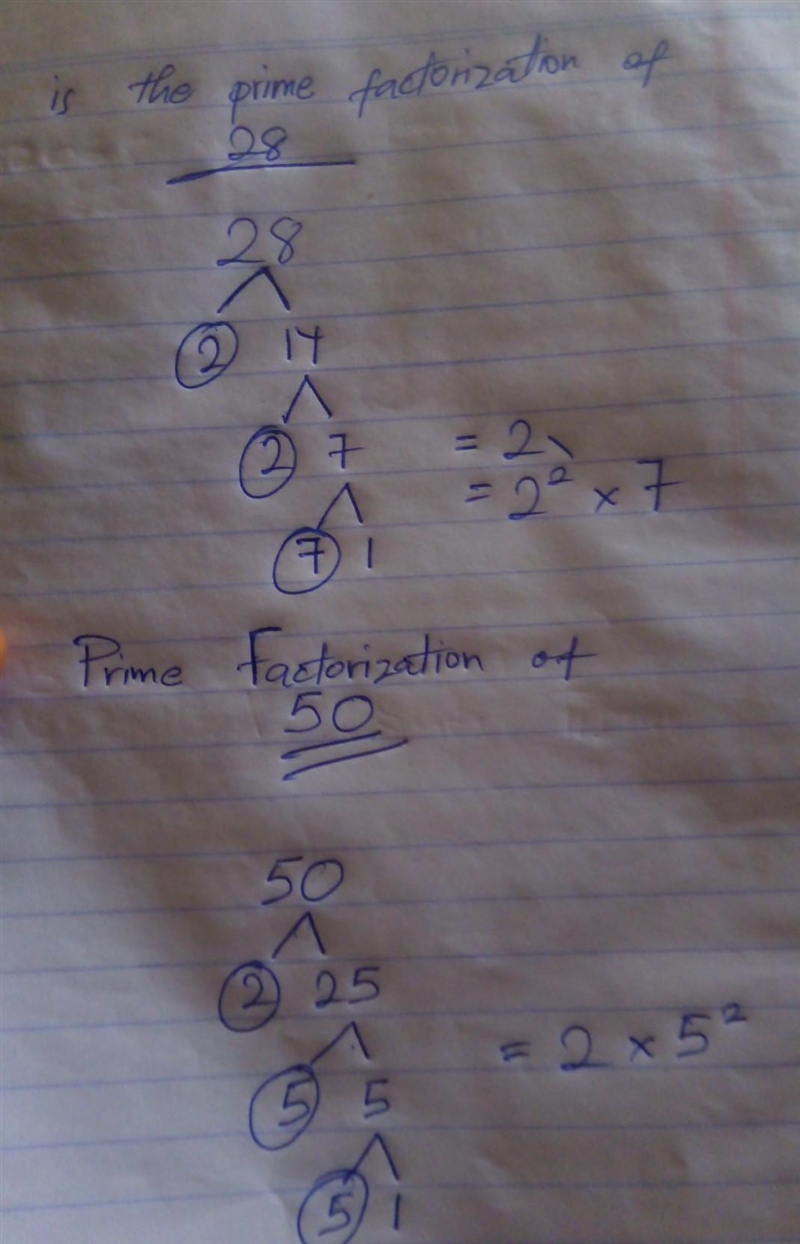 is the prime factorization of
28
28
2 14
2 7 = 2
= 2² × 7
7 1
Prime Factorization of
50
50
2 25
= 2 × 5²
5 5
5 1